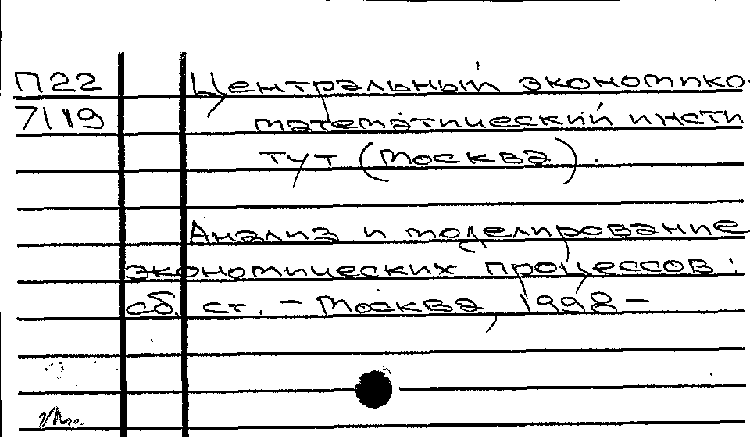 П22 Центральный экономико-
7119 математический инсти
тут (Москва).
Анализ и моделирование
экономических процессов:
сб. ст. - Москва, 1998 -